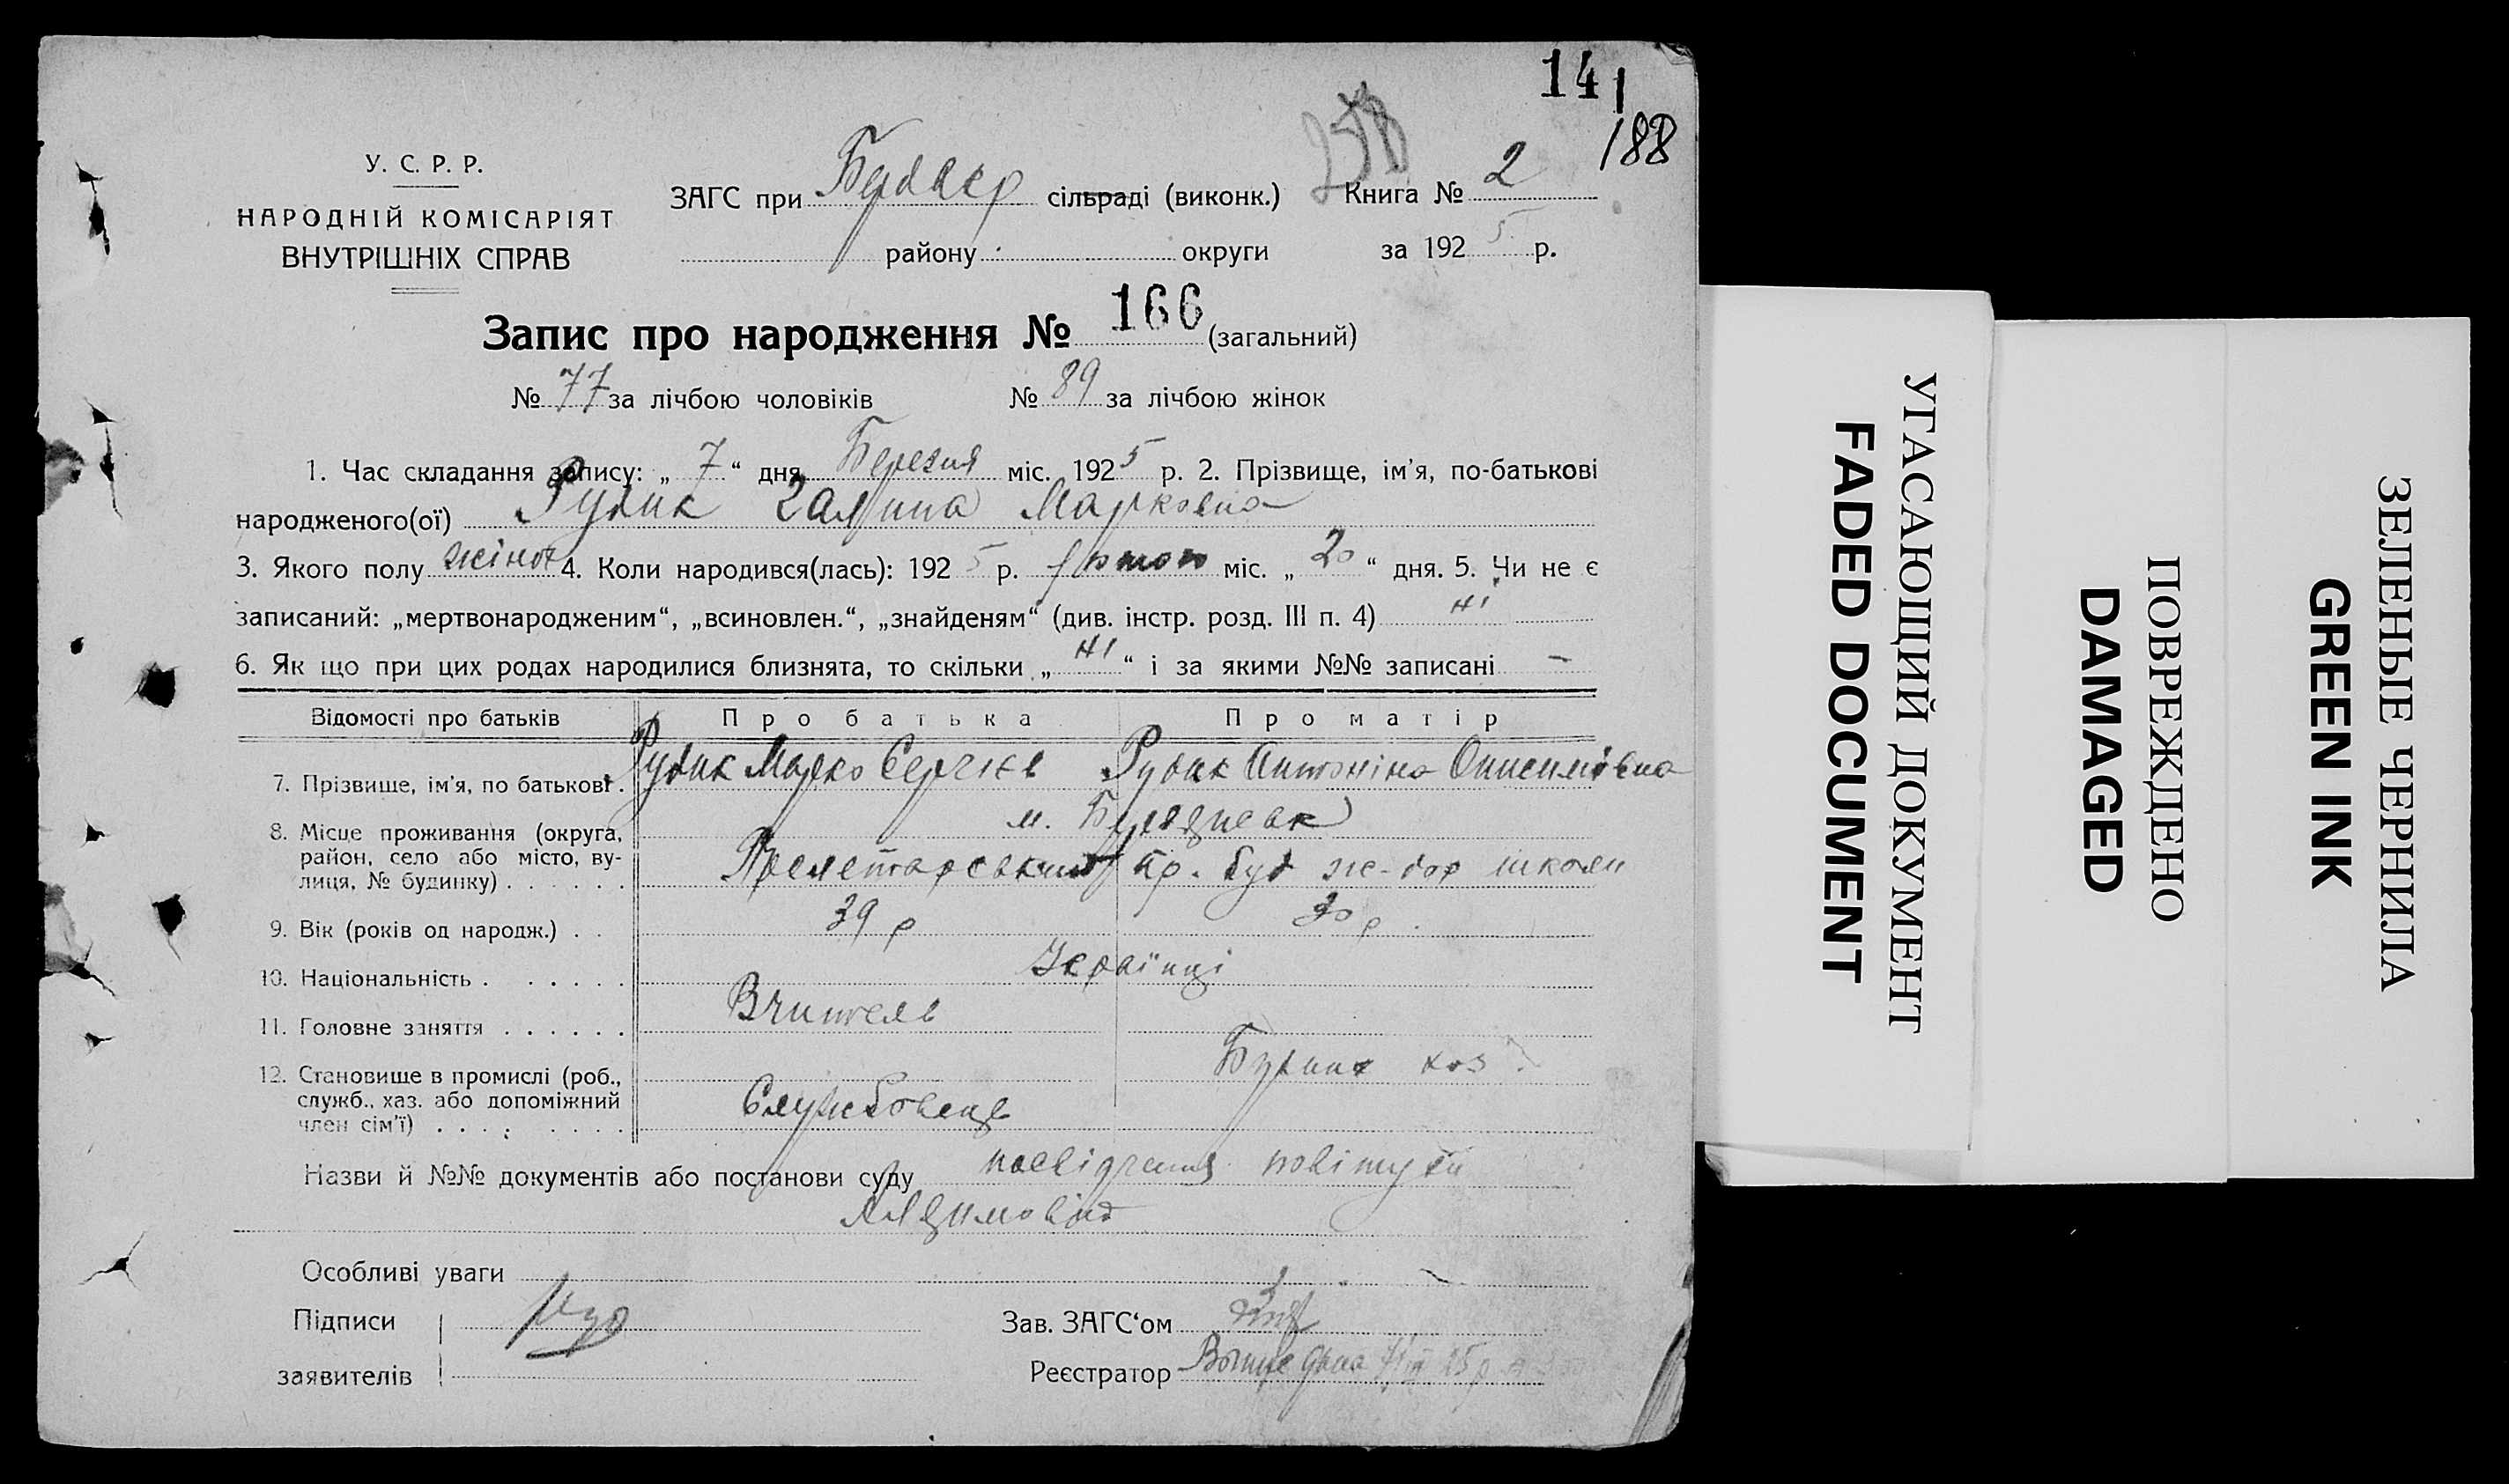 141
188
258
У. С. Р. Р.
НАРОДНІЙ КОМІСАРІЯТ
ВНУТРІШНІХ СПРАВ
ЗАГС при сільраді (виконк.) Книга № 2
району округи за 1925 р.
Запис про народження № 166 (загальний)
№ 77 за лічбою чоловіків № 89 за лічбою жінок
1. Час складання запису: „ 7 “ дня Березня міс. 1925 р. 2. Прізвище, ім'я, по-батькові
народженого(ої) Рудик Галина Марковна
3. Якого полу жіноч 4. Коли народився(лась): 1925 р. лютого міс. „ 20 “ дня. 5. Чи не є
записаний: „мертвонародженим“, „всиновлен.“, „знайденям“ (див. інстр. розд. III п. 4) ні
6. Як що при цих родах народилися близнята, то скільки „ ні “ і за якими №№ записані —
Відомості про батьків Про батька Про матір
7. Прізвище, ім'я, по батькові. Рудик Марко Сергієв Рудик Антоніна Онисимівна
8. Місце проживання (округа, м. Бердянськ
район, село або місто, ву- Пролетарський пр. буд же-дор школи
лиця, № будинку) . . . . . .
9. Вік (років од народж.) . . 39 р 30 р.
10. Національність . . . . . . Українці
11. Головне заняття . . . . . . Вчитель
12. Становище в промислі (роб., хоз
служб., хаз. або допоміжний Службовець
член сім'ї) . . . . . . . .
Назви й №№ документів або постанови суду посвідчення повітухи
Особливі уваги —
Підписи Зав. ЗАГС'ом
заявителів Реєстратор
УГАСАЮЩИЙ ДОКУМЕНТ
FADED DOCUMENT
ПОВРЕЖДЕНО
DAMAGED
ЗЕЛЕНЫЕ ЧЕРНИЛА
GREEN INK